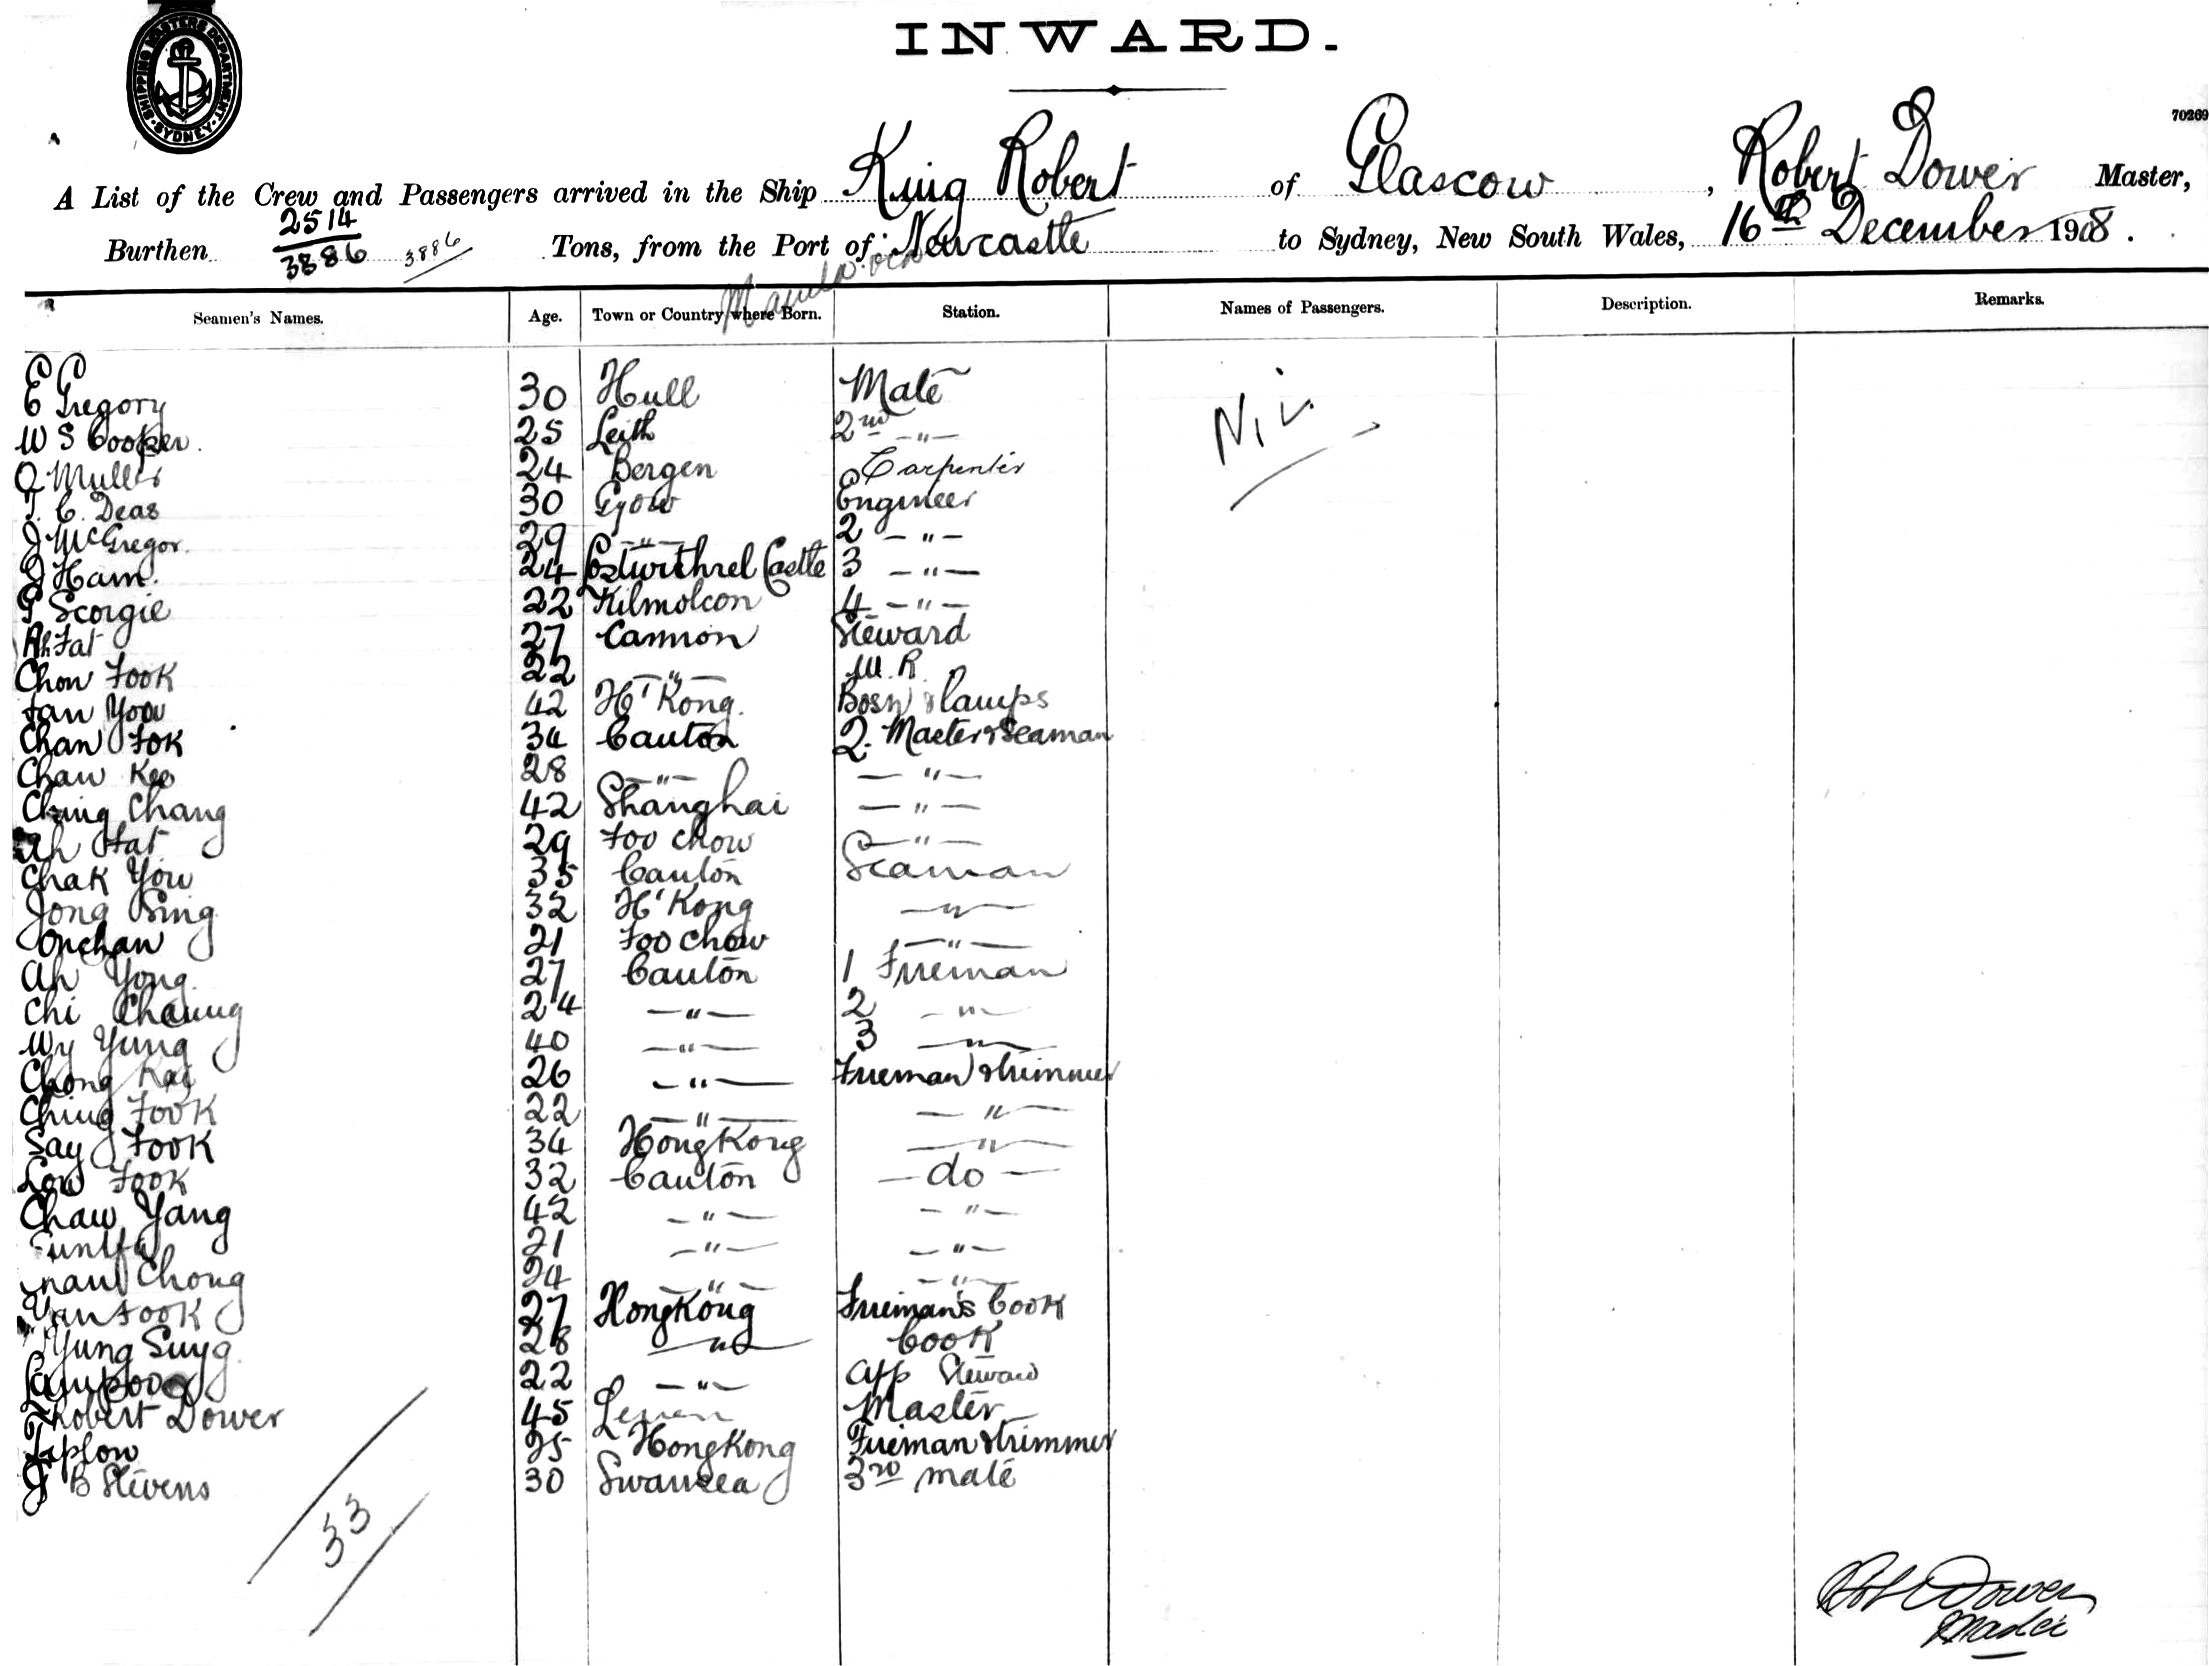 INWARD.
SHIPPING MASTERS DEPARTMENT. SYDNEY.
70269
A List of the Crew and Passengers arrived in the Ship King Robert of Glascow, Robert Dower Master,
Burthen 2514 3886 3886 Tons, from the Port of Newcastle to Sydney, New South Wales, 16th December 1908.
Manila
Seamen's Names. Age. Town or Country where Born. Station. Names of Passengers. Description. Remarks.
E Gregory 30 Hull Mate Nil
W S Cooper. 25 Leith 2nd -"-
O Muller 24 Bergen Carpenter
T. C. Deas 30 Engineer
J McGregor. 29 -"- 2 -"-
J Ham. 24 Lostwithrel Castle 3 -"-
G Scorgie 22 Kilmolcon 4 -"-
Ah Fat 27 Cannon Steward
Chow Fook 22 -"- M. R.
Tan You 42 H'Kong. Bosn & lamps
Chan Fok 34 Canton 2. Master & Seaman
Chaw Kee 28 -"- -"-
Ching Chang 42 Shanghai -"-
Ah Fat 29 Foo chow -"-
Chak You 35 Canton Seaman
Jong Sing 32 H'Kong -"-
Onchan 21 Foo chow -"-
Ah Yong. 27 Canton 1 Fireman
Chi Chaung 24 -"- 2 -"-
Wy Yung 40 -"- 3 -"-
Chong Kai 26 -"- Fireman & trimmer
Ching Fook 22 -"- -"-
Say Fook 34 HongKong -"-
Low Fook 32 Canton -do-
Chaw Yang 42 -"- -"-
21 -"- -"-
Chong 24 -"- -"-
Yan Fook 27 HongKong Fireman's Cook
Yung Suyg. 28 -"- Cook
22 -"- app Steward
Robert Dower 45 Leven Master
25 HongKong Fireman & trimmer
J B Stevens 30 Swansea 3rd mate
33
Robt Dower
Master